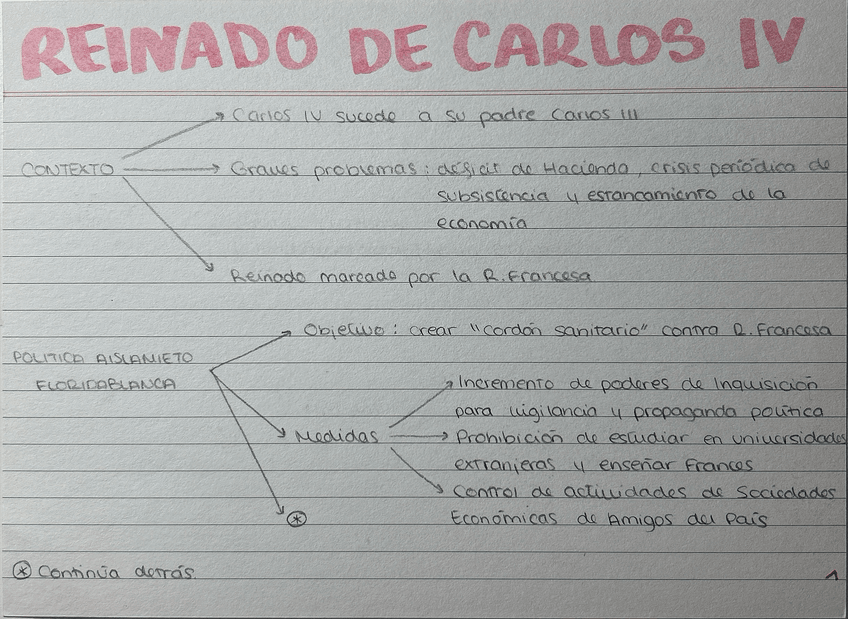 REINADO DE CARLOS IV
Carlos IV sucede a su padre Carlos III
CONTEXTO
Graves problemas: déficit de Hacienda, crisis periódica de
subsistencia y estancamiento de la
economía
Reinado marcado por la R. Francesa
Objetivo: crear "cordón sanitario" contra R. Francesa
POLITICA AISLAMIETO
FLORIDABLANCA
Incremento de poderes de Inquisición
para vigilancia y propaganda política
Medidas
Prohibición de estudiar en universidades
extranjeras y enseñar Frances
Control de actividades de Sociedades
Económicas de Amigos del País
*
* Continúa detrás.
1